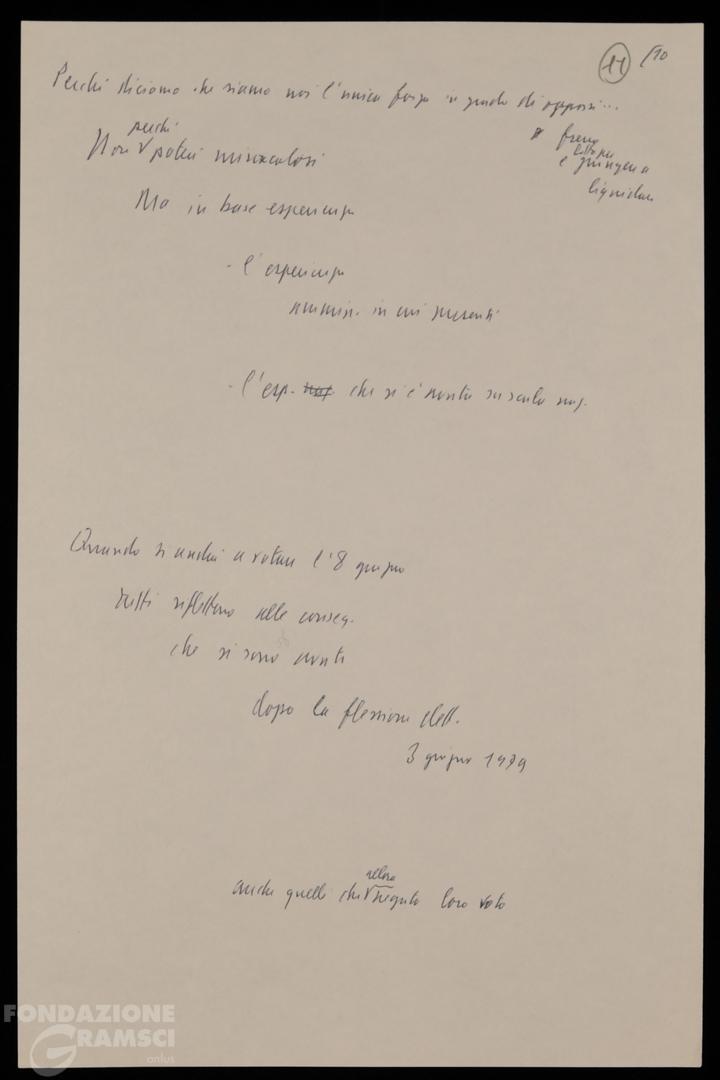 11 /10
Perché diciamo che siamo noi l'unica forza in grado di opporsi...
a freno
e battere
e spingere a
liquidare
perché
Non V poteri miracolosi
Ma in base esperienza
- l'esperienza
ammin. in cui presenti
- l'esp. che si è avuta su scala naz.
Quando si andrà a votare l'8 giugno
tutti riflettano alle conseg.
che si sono avute
dopo la flessione del
3 giugno 1979
allora
anche quelli che V negato loro voto
FONDAZIONE
GRAMSCI
onlus